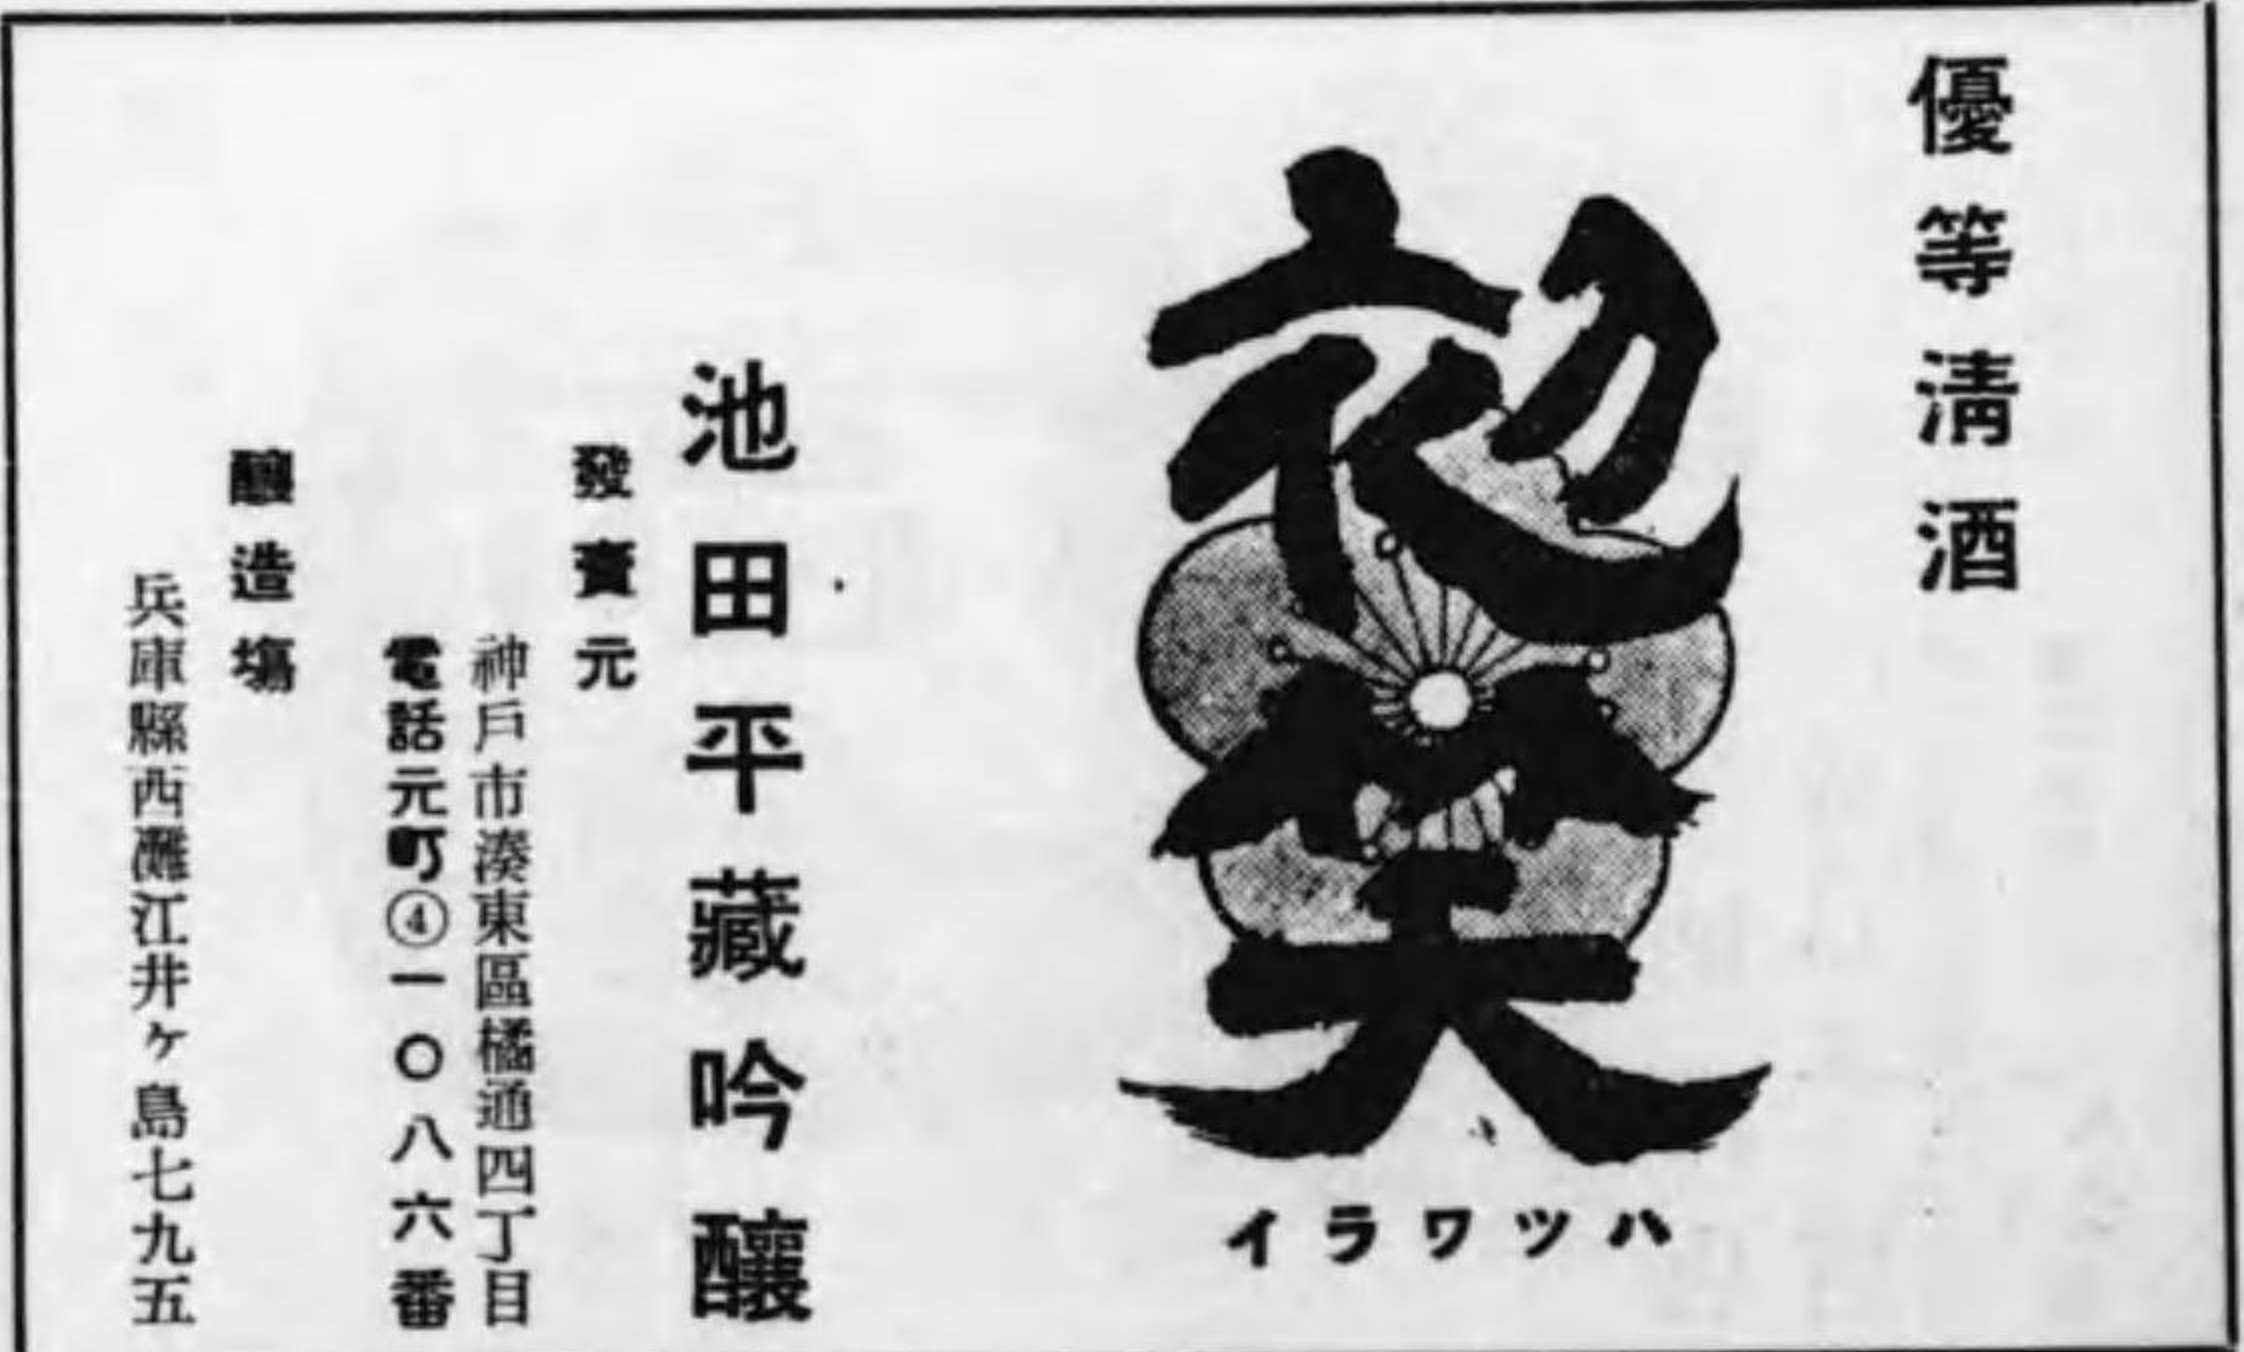 優等淸酒
初笑
ハツワライ
池田平藏吟釀
發賣元
神戶市湊東區橘通四丁目
電話元町④一〇八六番
釀造場
兵庫縣西灘江井ヶ島七九五